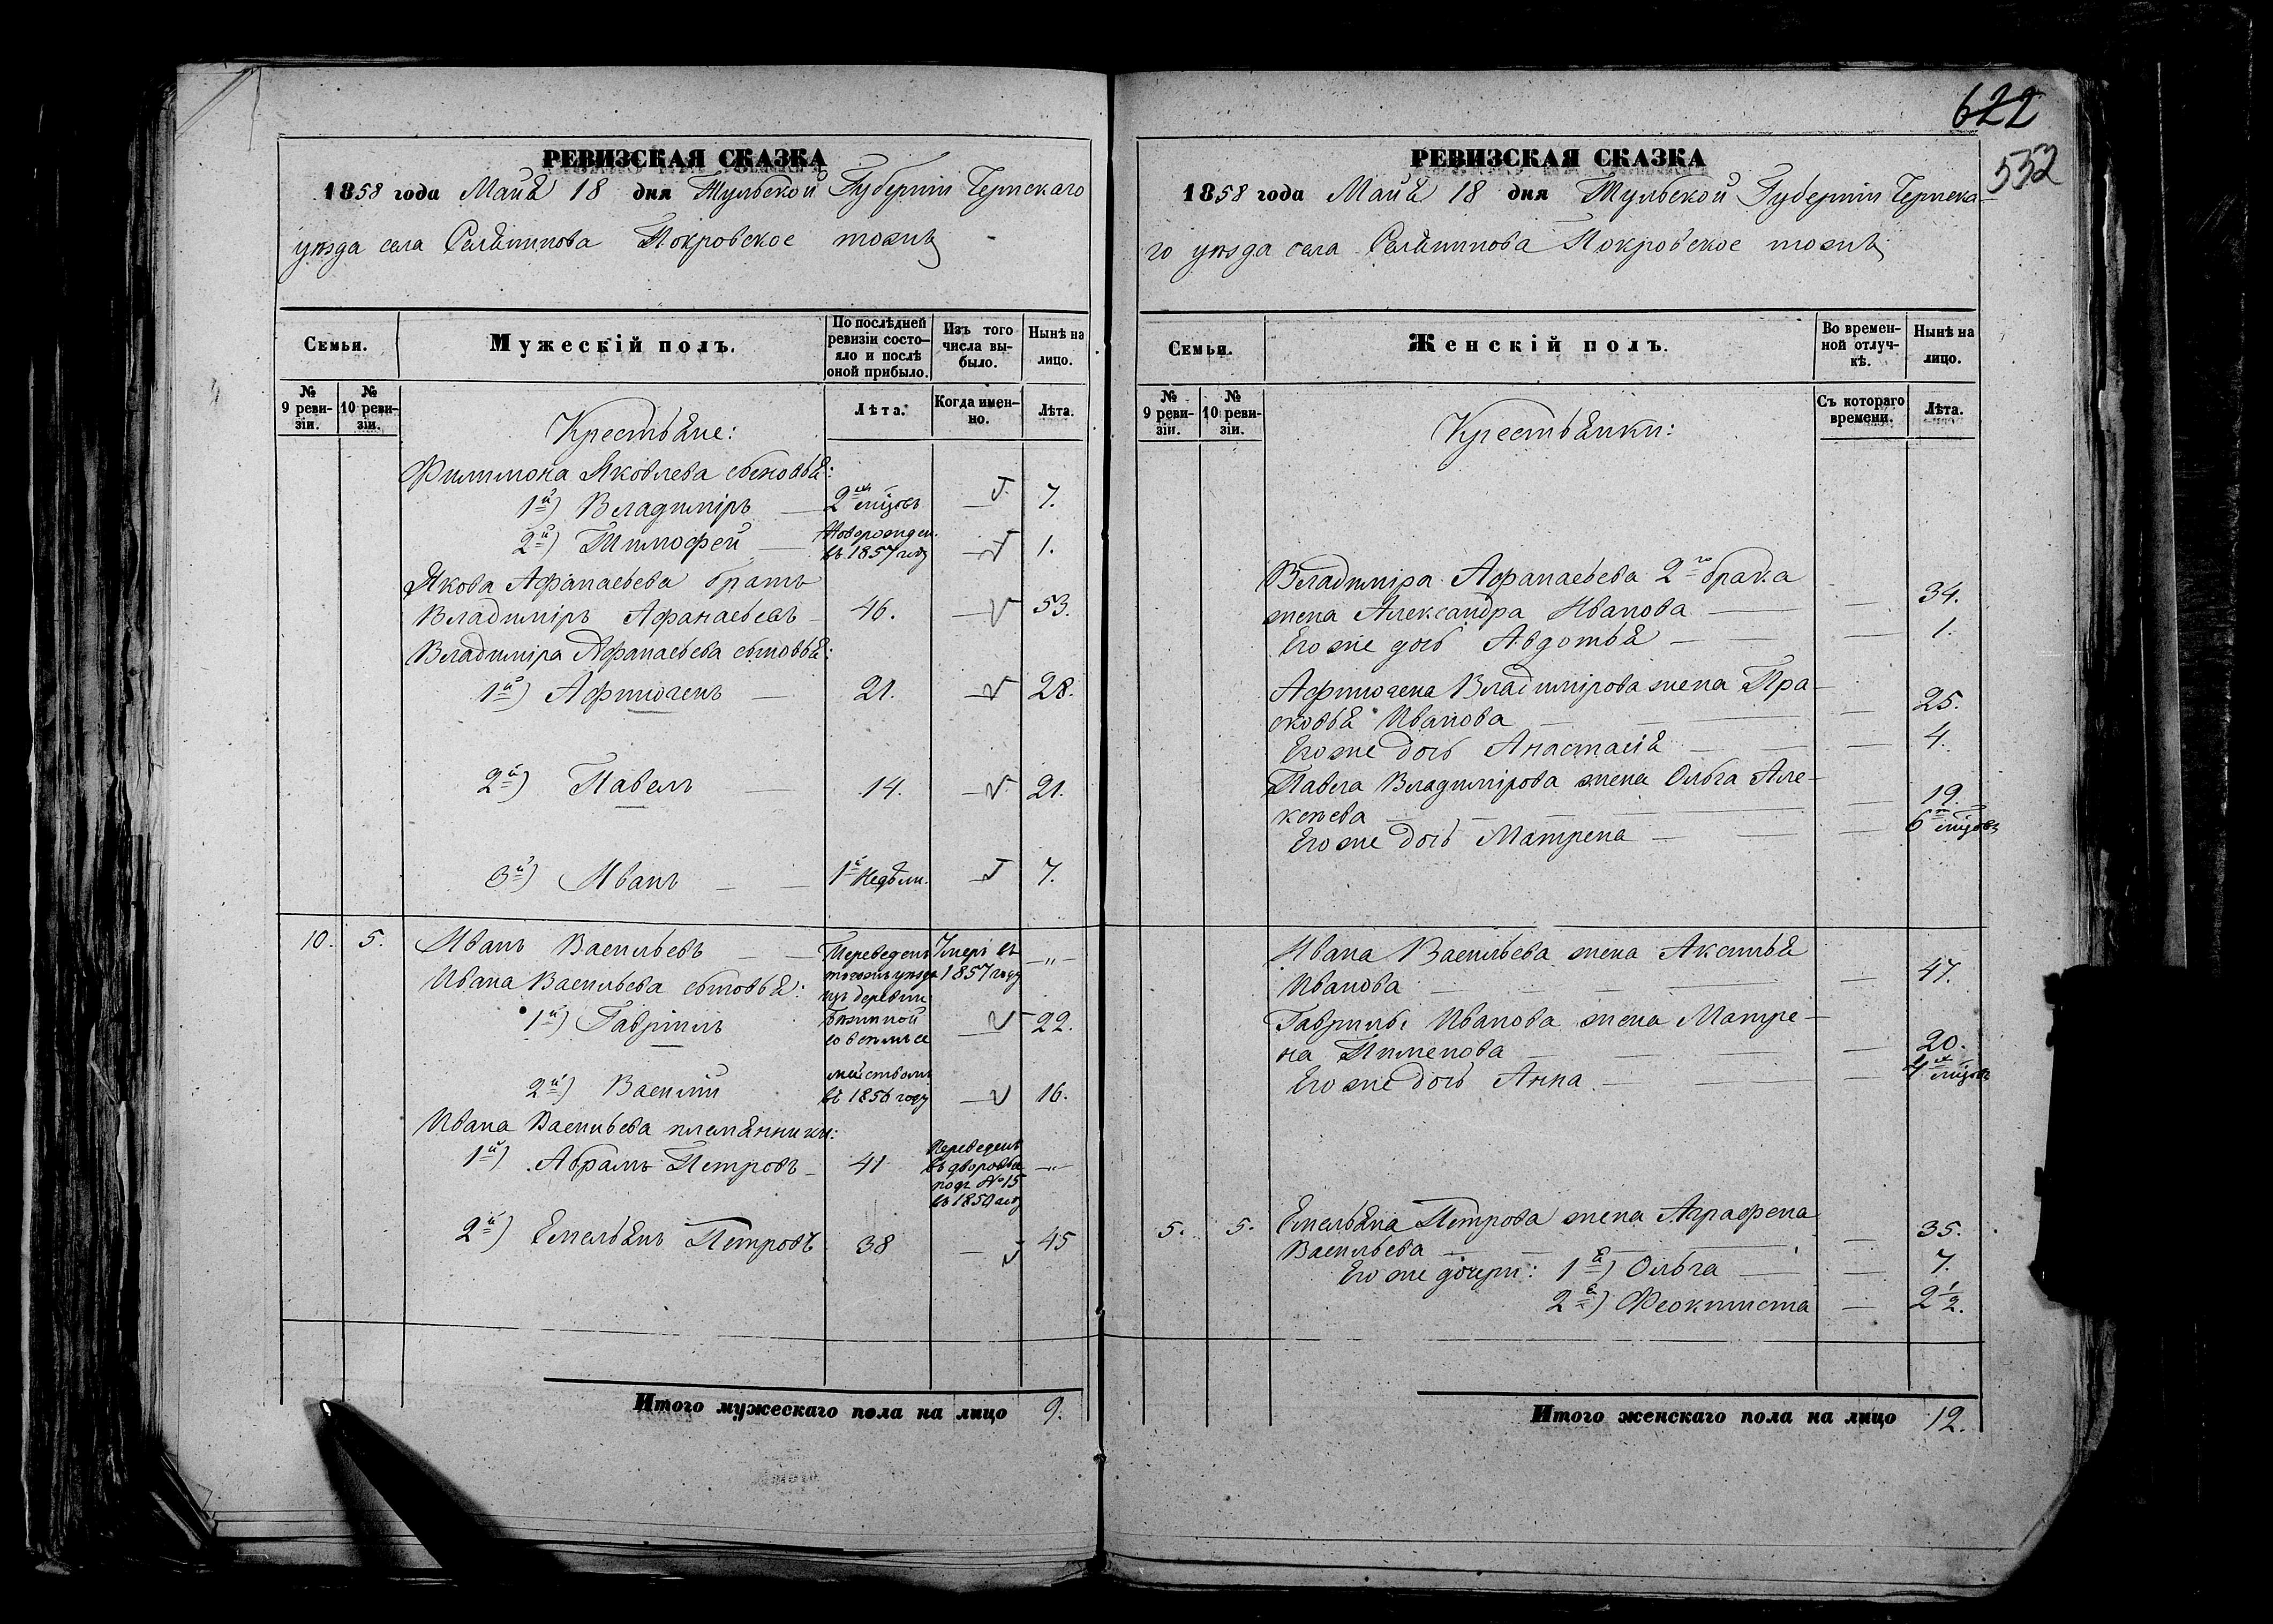 РЕВИЗСКАЯ СКАЗКА
1858 года Маия 18 дня Тульской Губерніи Чернскаго
уѣзда села Покровское тожъ
Семьи.
Мужескій полъ.
По послѣдней ревизіи состояло и послѣ оной прибыло.
Изъ того числа выбыло.
Нынѣ на лицо.
№ 9 ревизіи.
№ 10 ревизіи.
Лѣта.
Когда именно.
Лѣта.
Крестьяне:
Филимона Яковлева сыновья:
1й) Владиміръ — 2хъ мѣсцовъ — 7.
2й) Тимофей — Новорожден. въ 1857 году — 1.
Якова Афанасьева братъ
Владиміръ Афанасьевъ 46. — 53.
Владиміра Афанасьева сыновья:
1й) Афиногенъ — 21. — 28.
2й) Павелъ — 14. — 21.
3й) Иванъ — — 1й недѣли. — 7.
10. 5. Иванъ Васильевъ — Переведенъ Умеръ въ — „ —
Ивана Васильева сыновья: тогожъ уѣзда 1857 году
изъ деревни
1й) Гавріилъ — 22.
со всѣмъ се
мействомъ
2й) Василій въ 1856 году — 16.
Ивана Васильева племянники:
1й) Абрамъ Петровъ — 41 Переведенъ въ дворовые подъ №15 въ 1850 году — „ —
2й) Емельянъ Петровъ 38 — 45
Итого мужескаго пола на лицо 9.
622
552
РЕВИЗСКАЯ СКАЗКА
1858 года Маия 18 дня Тульской Губерніи Чернска-
го уѣзда села Покровское тожъ
Семьи.
Женскій полъ.
Во временной отлучкѣ.
Нынѣ на лицо.
№ 9 ревизіи.
№ 10 ревизіи.
Съ котораго времени.
Лѣта.
Крестьянки:
Владиміра Афанасьева 2го брака
жена Александра Иванова — — 34.
Его же дочь Авдотья — — 1.
Афиногена Владимірова жена Пра-
сковья Иванова — — 25.
Его же дочь Анастасія — — 4.
Павла Владимірова жена Ольга Але-
ксѣева — — 19.
Его же дочь Матрена — — 6ти мѣсцовъ
Ивана Васильева жена Аксинья
Иванова — — 47.
Гаврилы Иванова жена Матре-
на Пименова — — 20.
Его же дочь Анна — — 4хъ мѣсцовъ
5. 5. Емельяна Петрова жена Аграфена
Васильева — — 35.
Его же дочери: 1я) Ольга — — 7.
2я) Феоктиста — 2 1/2.
Итого женскаго пола на лицо 12.